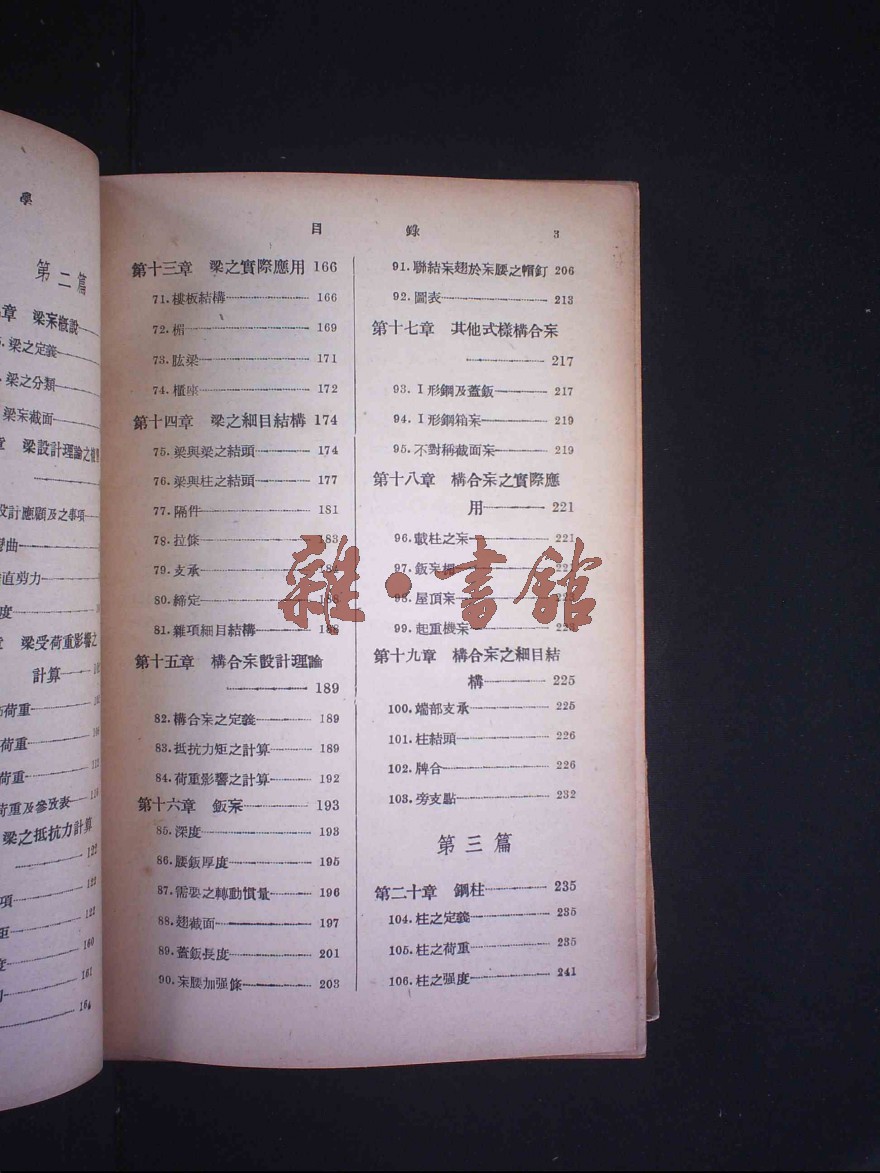 學
第二篇
章 梁宩概說
梁之定義
梁之分類
梁宩截面
梁設計理論之
設計應顧及之事項
彎曲
直剪力
度
梁受荷重影響之
計算
荷重
荷重
荷重
荷重及參攷表
梁之抵抗力計算
122
項 122
矩 122
度 160
161
目 錄 3
第十三章 梁之實際應用 166
71.樓板結構 166
72.楣 169
73.肱梁 171
74.櫃座 172
第十四章 梁之細目結構 174
75.梁與梁之結頭 174
76.梁與柱之結頭 177
77.隔件 181
78.拉條 183
79.支承
80.締定
81.雜項細目結構 188
第十五章 構合宩設計理論
189
82.構合宩之定義 189
83.抵抗力矩之計算 189
84.荷重影響之計算 192
第十六章 鈑宩 193
85.深度 193
86.腰鈑厚度 195
87.需要之轉動慣量 196
88.翅截面 197
89.蓋鈑長度 201
90.宩腰加强條 203
91.聯結宩翅於宩腰之帽釘 206
92.圖表 213
第十七章 其他式樣構合宩
217
93.I形鋼及蓋鈑 217
94.I形鋼箱宩 219
95.不對稱截面宩 219
第十八章 構合宩之實際應
用 221
96.載柱之宩 221
97.鈑宩
98.屋頂宩
99.起重機宩
第十九章 構合宩之細目結
構 225
100.端部支承 225
101.柱結頭 226
102.牌合 226
103.旁支點 232
第三篇
第二十章 鋼柱 235
104.柱之定義 235
105.柱之荷重 235
106.柱之强度 241
雜·書館